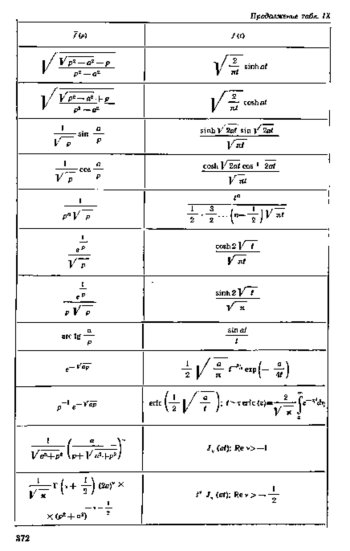 Продолжение табл. IX
f̄(p) f(t)
√((√(p²−a²)−p)/(p²−a²)) √(2/(πt)) sinh at
√((√(p²−a²)+p)/(p²−a²)) √(2/(πt)) cosh at
1/√p sin a/p sinh √2at sin √2at / √πt
1/√p cos a/p cosh √2at cos √2at / √πt
1/(pⁿ√p) tⁿ / (1/2 · 3/2 ... (n − 1/2) √πt)
e^(1/p) / √p cosh 2√t / √πt
e^(1/p) / (p√p) sinh 2√t / √π
arc tg a/p sin at / t
e^(−√ap) 1/2 √(a/π) t^(−3/2) exp(− a/4t)
p⁻¹ e^(−√ap) erfc (1/2 √(a/t));
1/√(a²+p²) (a/(p+√(a²+p²)))^ν J_ν (at); Re ν > −1
1/√π Γ(ν + 1/2) (2a)^ν × t^ν J_ν (at); Re ν > − 1/2
× (p² + a²)^(−ν − 1/2)
372